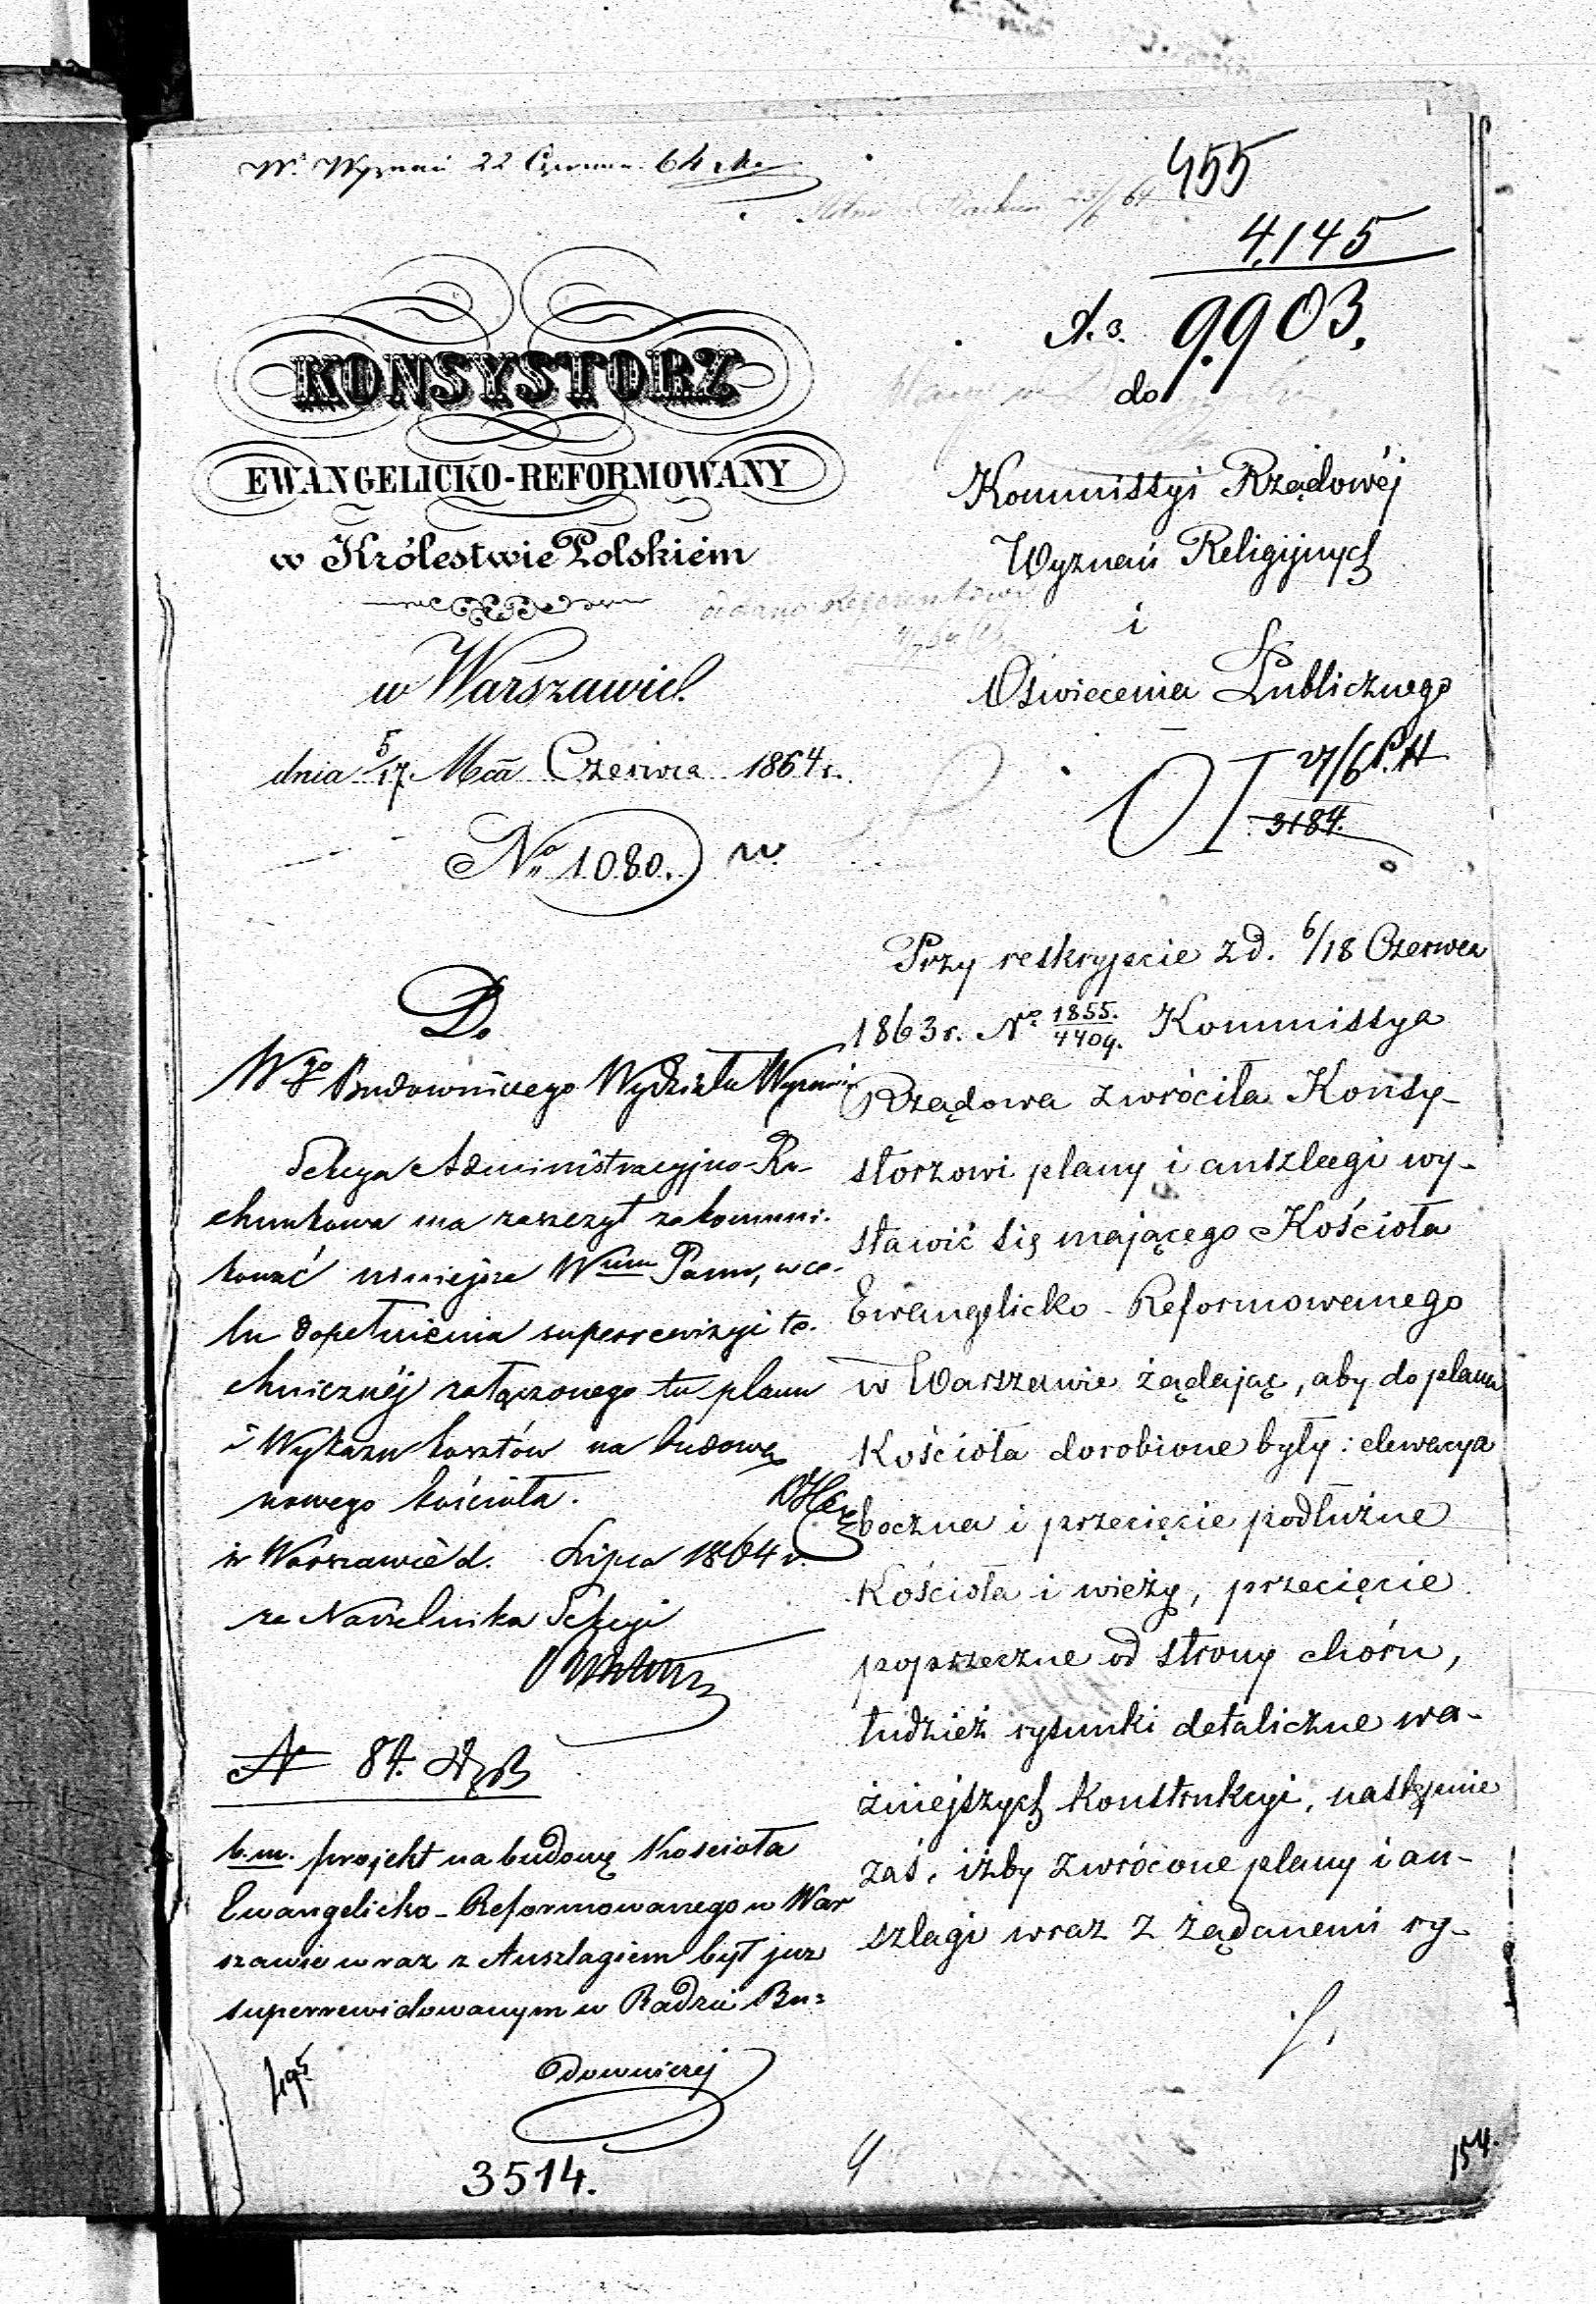 Wł. Wyznań 22 Czerwca 64
455
4,145
A. 3. 9.903.
do
KONSYSTORZ
EWANGELICKO-REFORMOWANY
w Królestwie Polskiém
w Warszawie.
dnia 5/17 Mca Czerwca 1864 r.
No 1080.
Kommissyi Rządowéj
Wyznań Religijnych
i
Oświecenia Publicznego
3184.
Przy reskrypcie z d. 6/18 Czerwca
1863 r. No 1855./4409. Kommissya
Rządowa zwróciła Konsy-
storzowi plany i anszlagi wy-
stawić się mającego Kościoła
Ewangelicko-Reformowanego
w Warszawie żądając, aby do planu
Kościoła dorobione były: elewacya
boczna i przecięcie podłużne
Kościoła i wieży, przecięcie
poprzeczne od strony chóru,
tudzież rysunki detaliczne wa-
żniejszych konstrukcyi, następnie
zaś, iżby zwrócone plany i an-
szlagi wraz z żądanemi ry-
Do
Wgo Budowniczego Wydziału Wyznań
Sekcya Administracyjno-Ra-
chunkowa ma zaszczyt zakomuni-
kować niniejsze Wmu Panu, w ce-
lu dopełnienia superrewizyi te-
chnicznéj załączonego tu planu
i Wykazu kosztów na budowę
nowego kościoła.
w Warszawie d. Lipca 1864 r.
za Naczelnika Sekcyi
N 84.
b.m. projekt na budowę Kościoła
Ewangelicko-Reformowanego w War
szawie wraz z Anszlagiem był już
superrewidowanym w Radzie Bu=
downiczej
3514.
154.